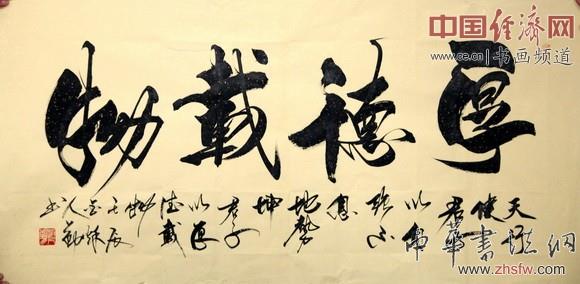 中国经济网
www.ce.cn 书画频道
厚德載物
天行
健
君子
以自
強不
息
地勢
坤
君子
以厚
德載
物
壬辰
中華書法網
www.zhsfw.com